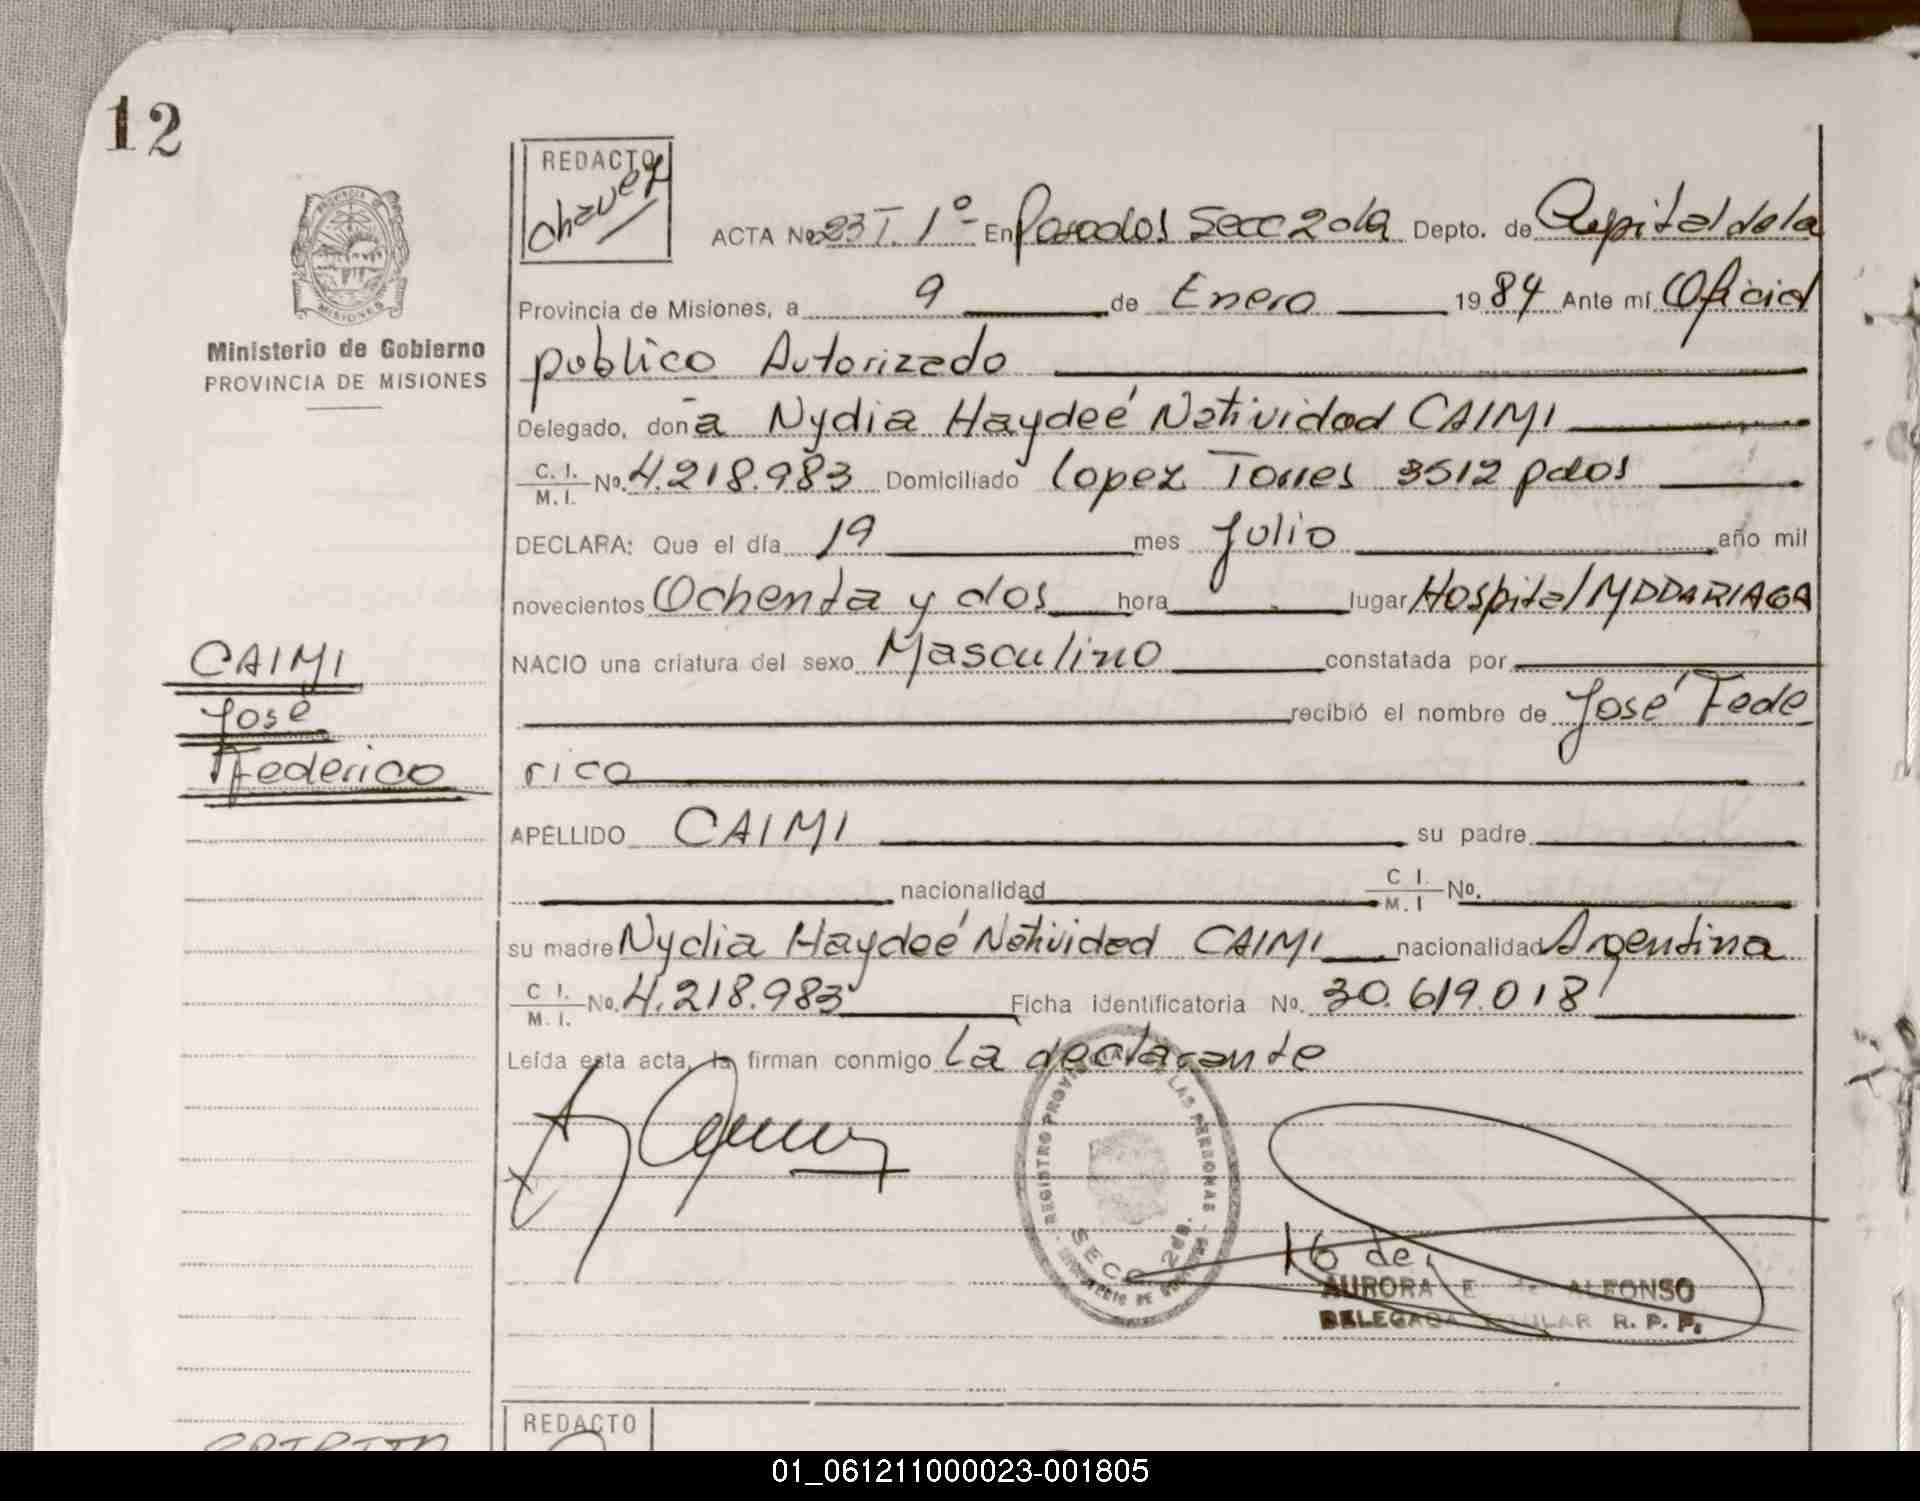 12
REDACTO
chavez
ACTA No. 23 T. 1º- En Posadas Secc 2da Depto. de Capital de la
Provincia de Misiones, a 9 de Enero 1984 Ante mí Oficial
PROVINCIA DE
MISIONES
Ministerio de Gobierno
PROVINCIA DE MISIONES
publico Autorizado
Delegado, doña Nydia Haydeé Natividad CAIMI
C. I.
M. I. No. 4.218.983 Domiciliado Lopez Torres 3512 pdos
DECLARA: Que el día 19 mes Julio año mil
novecientos Ochenta y dos hora lugar Hospital MDDARIAGA
CAIMI
José
Federico
NACIO una criatura del sexo Masculino constatada por
recibió el nombre de José Fede
rico
APELLIDO CAIMI su padre
nacionalidad C I. M. I No.
su madre Nydia Haydeé Natividad CAIMI nacionalidad Argentina
C I.
M. I. No. 4.218.983 Ficha identificatoria No. 30.619.018
Leída esta acta, la firman conmigo La declarante
REGISTRO PROVINCIAL DE LAS PERSONAS
SECC 2da.
16 de
AURORA E de ALFONSO
DELEGADA TITULAR R. P. P.
REDACTO
01_061211000023-001805